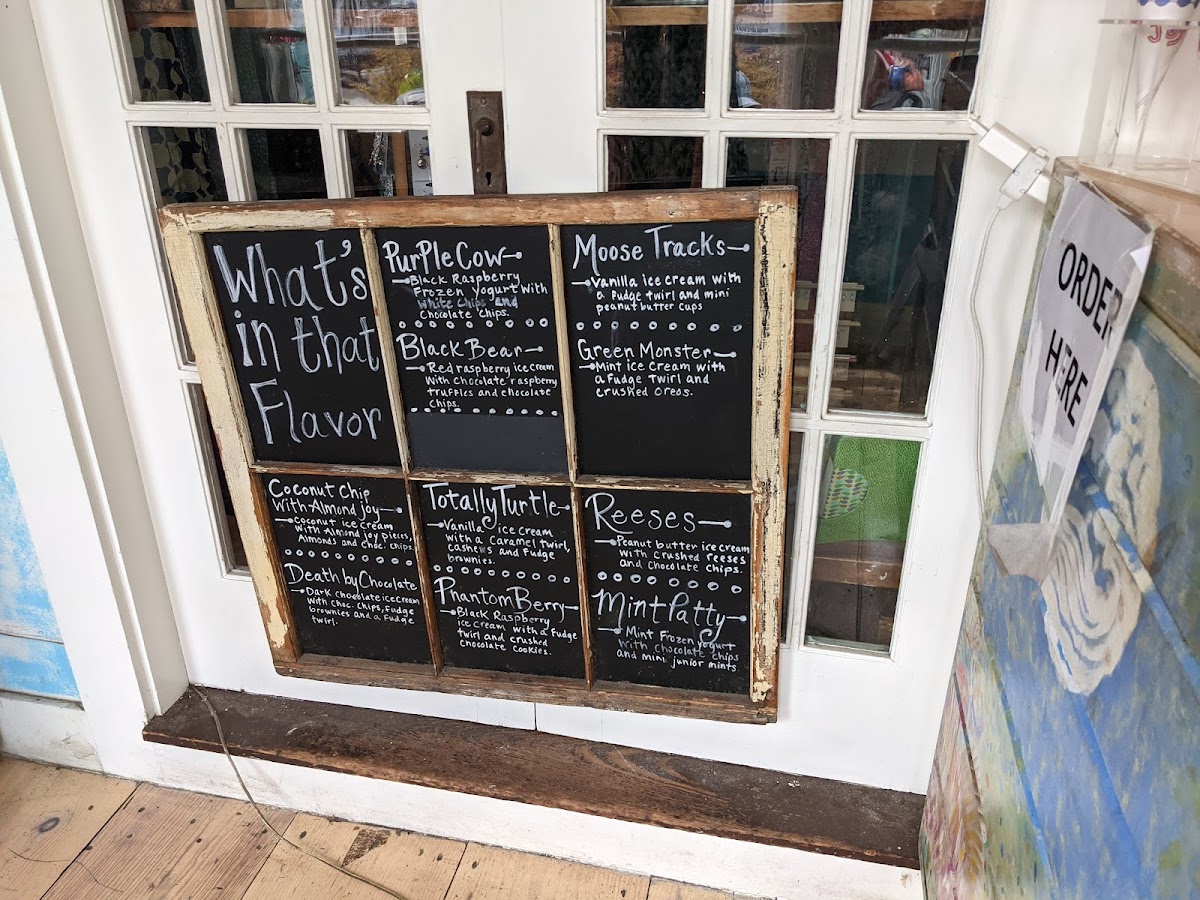 What's
in that
Flavor
PurPle Cow
Black Raspberry
Frozen Yogurt with
White Chips and
Chocolate Chips.
Black Bear
Red raspberry ice cream
With Chocolate raspberry
truffles and chocolate
chips.
Moose Tracks
Vanilla ice cream with
a fudge twirl and mini
peanut butter cups
Green Monster
Mint ice cream with
a Fudge twirl and
crushed oreos.
Coconut Chip
With Almond joy
Coconut ice cream
with Almond joy pieces,
Almonds and choc. chips.
Death by Chocolate
Dark chocolate ice cream
with choc. chips, fudge
brownies and a fudge
twirl.
Totally Turtle
Vanilla ice cream
with a caramel twirl,
cashews and fudge
brownies.
Phantom Berry
Black Raspberry
ice cream with a fudge
twirl and crushed
chocolate cookies.
Reeses
Peanut butter ice cream
with crushed reeses
and chocolate chips.
Mint Patty
Mint Frozen Yogurt
with chocolate chips
and mini junior mints.
ORDER
HERE